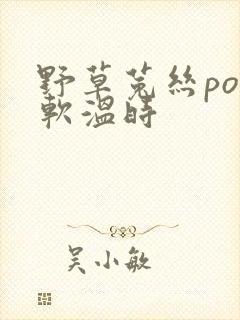 野草菟絲po
軟溫時
吴小敏